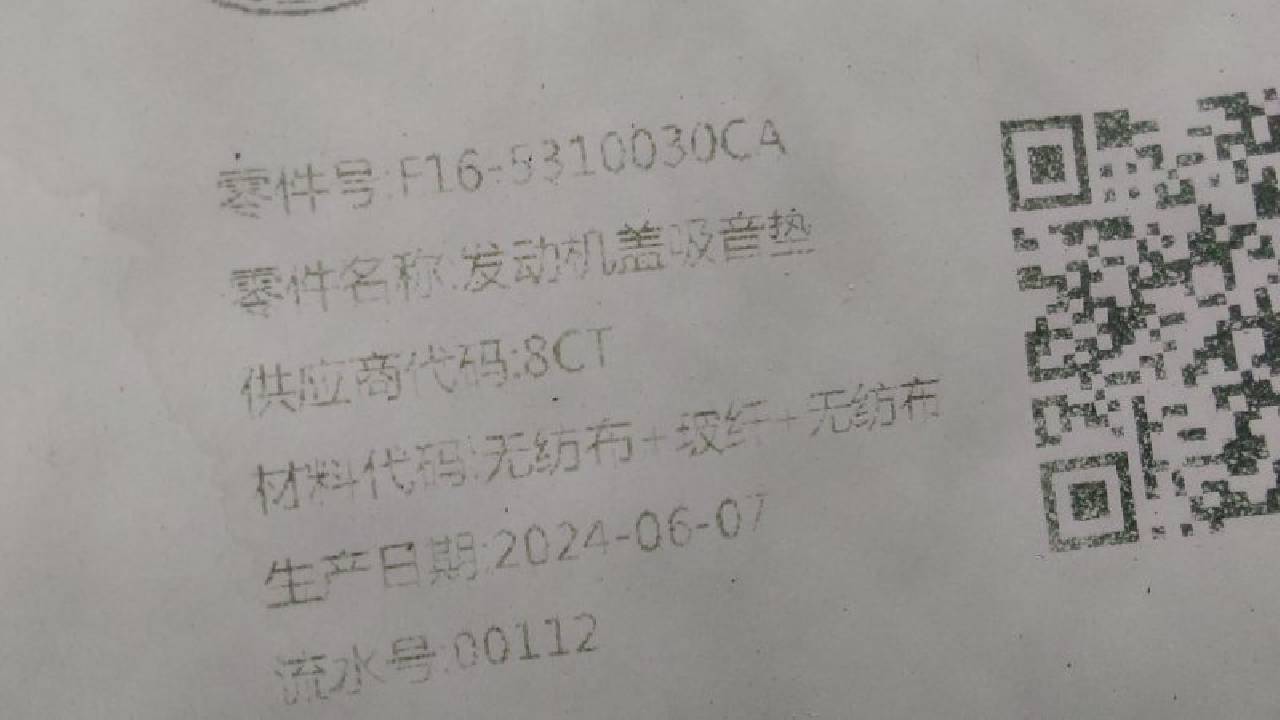 零件号:F16-5310030CA
零件名称:发动机盖吸音垫
供应商代码:8CT
材料代码:无纺布+玻纤+无纺布
生产日期:2024-06-07
流水号:00112